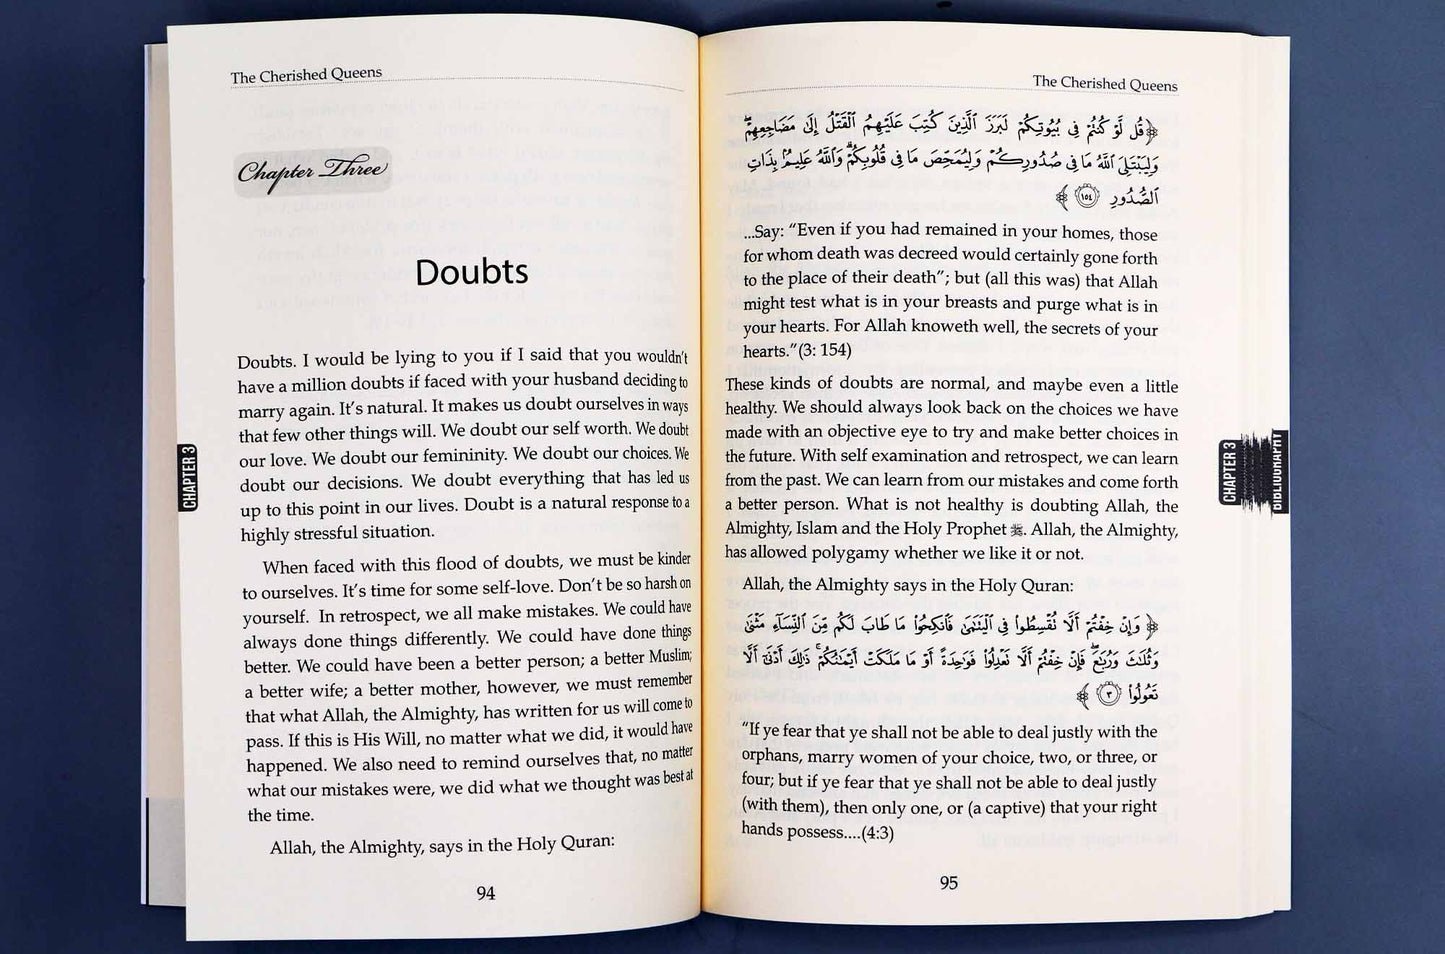 The Cherished Queens
Chapter Three
Doubts
Doubts. I would be lying to you if I said that you wouldn't
have a million doubts if faced with your husband deciding to
marry again. It's natural. It makes us doubt ourselves in ways
that few other things will. We doubt our self worth. We doubt
our love. We doubt our femininity. We doubt our choices. We
doubt our decisions. We doubt everything that has led us
up to this point in our lives. Doubt is a natural response to a
highly stressful situation.
When faced with this flood of doubts, we must be kinder
to ourselves. It's time for some self-love. Don't be so harsh on
yourself. In retrospect, we all make mistakes. We could have
always done things differently. We could have done things
better. We could have been a better person; a better Muslim;
a better wife; a better mother, however, we must remember
that what Allah, the Almighty, has written for us will come to
pass. If this is His Will, no matter what we did, it would have
happened. We also need to remind ourselves that, no matter
what our mistakes were, we did what we thought was best at
the time.
Allah, the Almighty, says in the Holy Quran:
94
CHAPTER 3
The Cherished Queens
﴿قُل لَّوْ كُنتُمْ فِي بُيُوتِكُمْ لَبَرَزَ ٱلَّذِينَ كُتِبَ عَلَيْهِمُ ٱلْقَتْلُ إِلَىٰ مَضَاجِعِهِمْ ۖ
وَلِيَبْتَلِيَ ٱللَّهُ مَا فِي صُدُورِكُمْ وَلِيُمَحِّصَ مَا فِي قُلُوبِكُمْ ۗ وَٱللَّهُ عَلِيمٌۢ بِذَاتِ
ٱلصُّدُورِ ١٥٤﴾
...Say: “Even if you had remained in your homes, those
for whom death was decreed would certainly gone forth
to the place of their death”; but (all this was) that Allah
might test what is in your breasts and purge what is in
your hearts. For Allah knoweth well, the secrets of your
hearts.”(3: 154)
These kinds of doubts are normal, and maybe even a little
healthy. We should always look back on the choices we have
made with an objective eye to try and make better choices in
the future. With self examination and retrospect, we can learn
from the past. We can learn from our mistakes and come forth
a better person. What is not healthy is doubting Allah, the
Almighty, Islam and the Holy Prophet ﷺ. Allah, the Almighty,
has allowed polygamy whether we like it or not.
Allah, the Almighty says in the Holy Quran:
﴿وَإِنْ خِفْتُمْ أَلَّا تُقْسِطُوا۟ فِي ٱلْيَتَٰمَىٰ فَٱنكِحُوا۟ مَا طَابَ لَكُم مِّنَ ٱلنِّسَآءِ مَثْنَىٰ
وَثُلَٰثَ وَرُبَٰعَ ۖ فَإِنْ خِفْتُمْ أَلَّا تَعْدِلُوا۟ فَوَٰحِدَةً أَوْ مَا مَلَكَتْ أَيْمَٰنُكُمْ ۚ ذَٰلِكَ أَدْنَىٰٓ أَلَّا
تَعُولُوا۟ ٣﴾
“If ye fear that ye shall not be able to deal justly with the
orphans, marry women of your choice, two, or three, or
four; but if ye fear that ye shall not be able to deal justly
(with them), then only one, or (a captive) that your right
hands possess....(4:3)
95
CHAPTER 3
BIBLIOGRAPHY